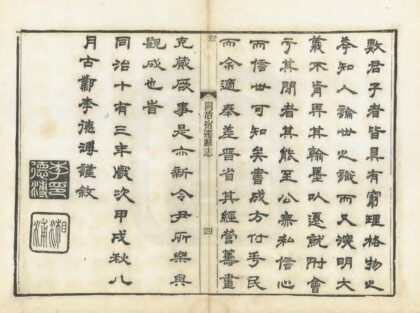 數君子者皆具有窮理格物之
學知人論世之識而又深明大
義不肯弄其翰墨以遷就附會
于其間者其能至公無私信心
而信世可知矣書成方付手民
而余適奉差晉省其經營籌畫
同治宿遷縣志
四
克蕆厥事是亦新令尹所樂與
觀成也旹
同治十有三年歲次甲戌秋八
月古鄭李德溥謹敘
李印德溥
湘浦